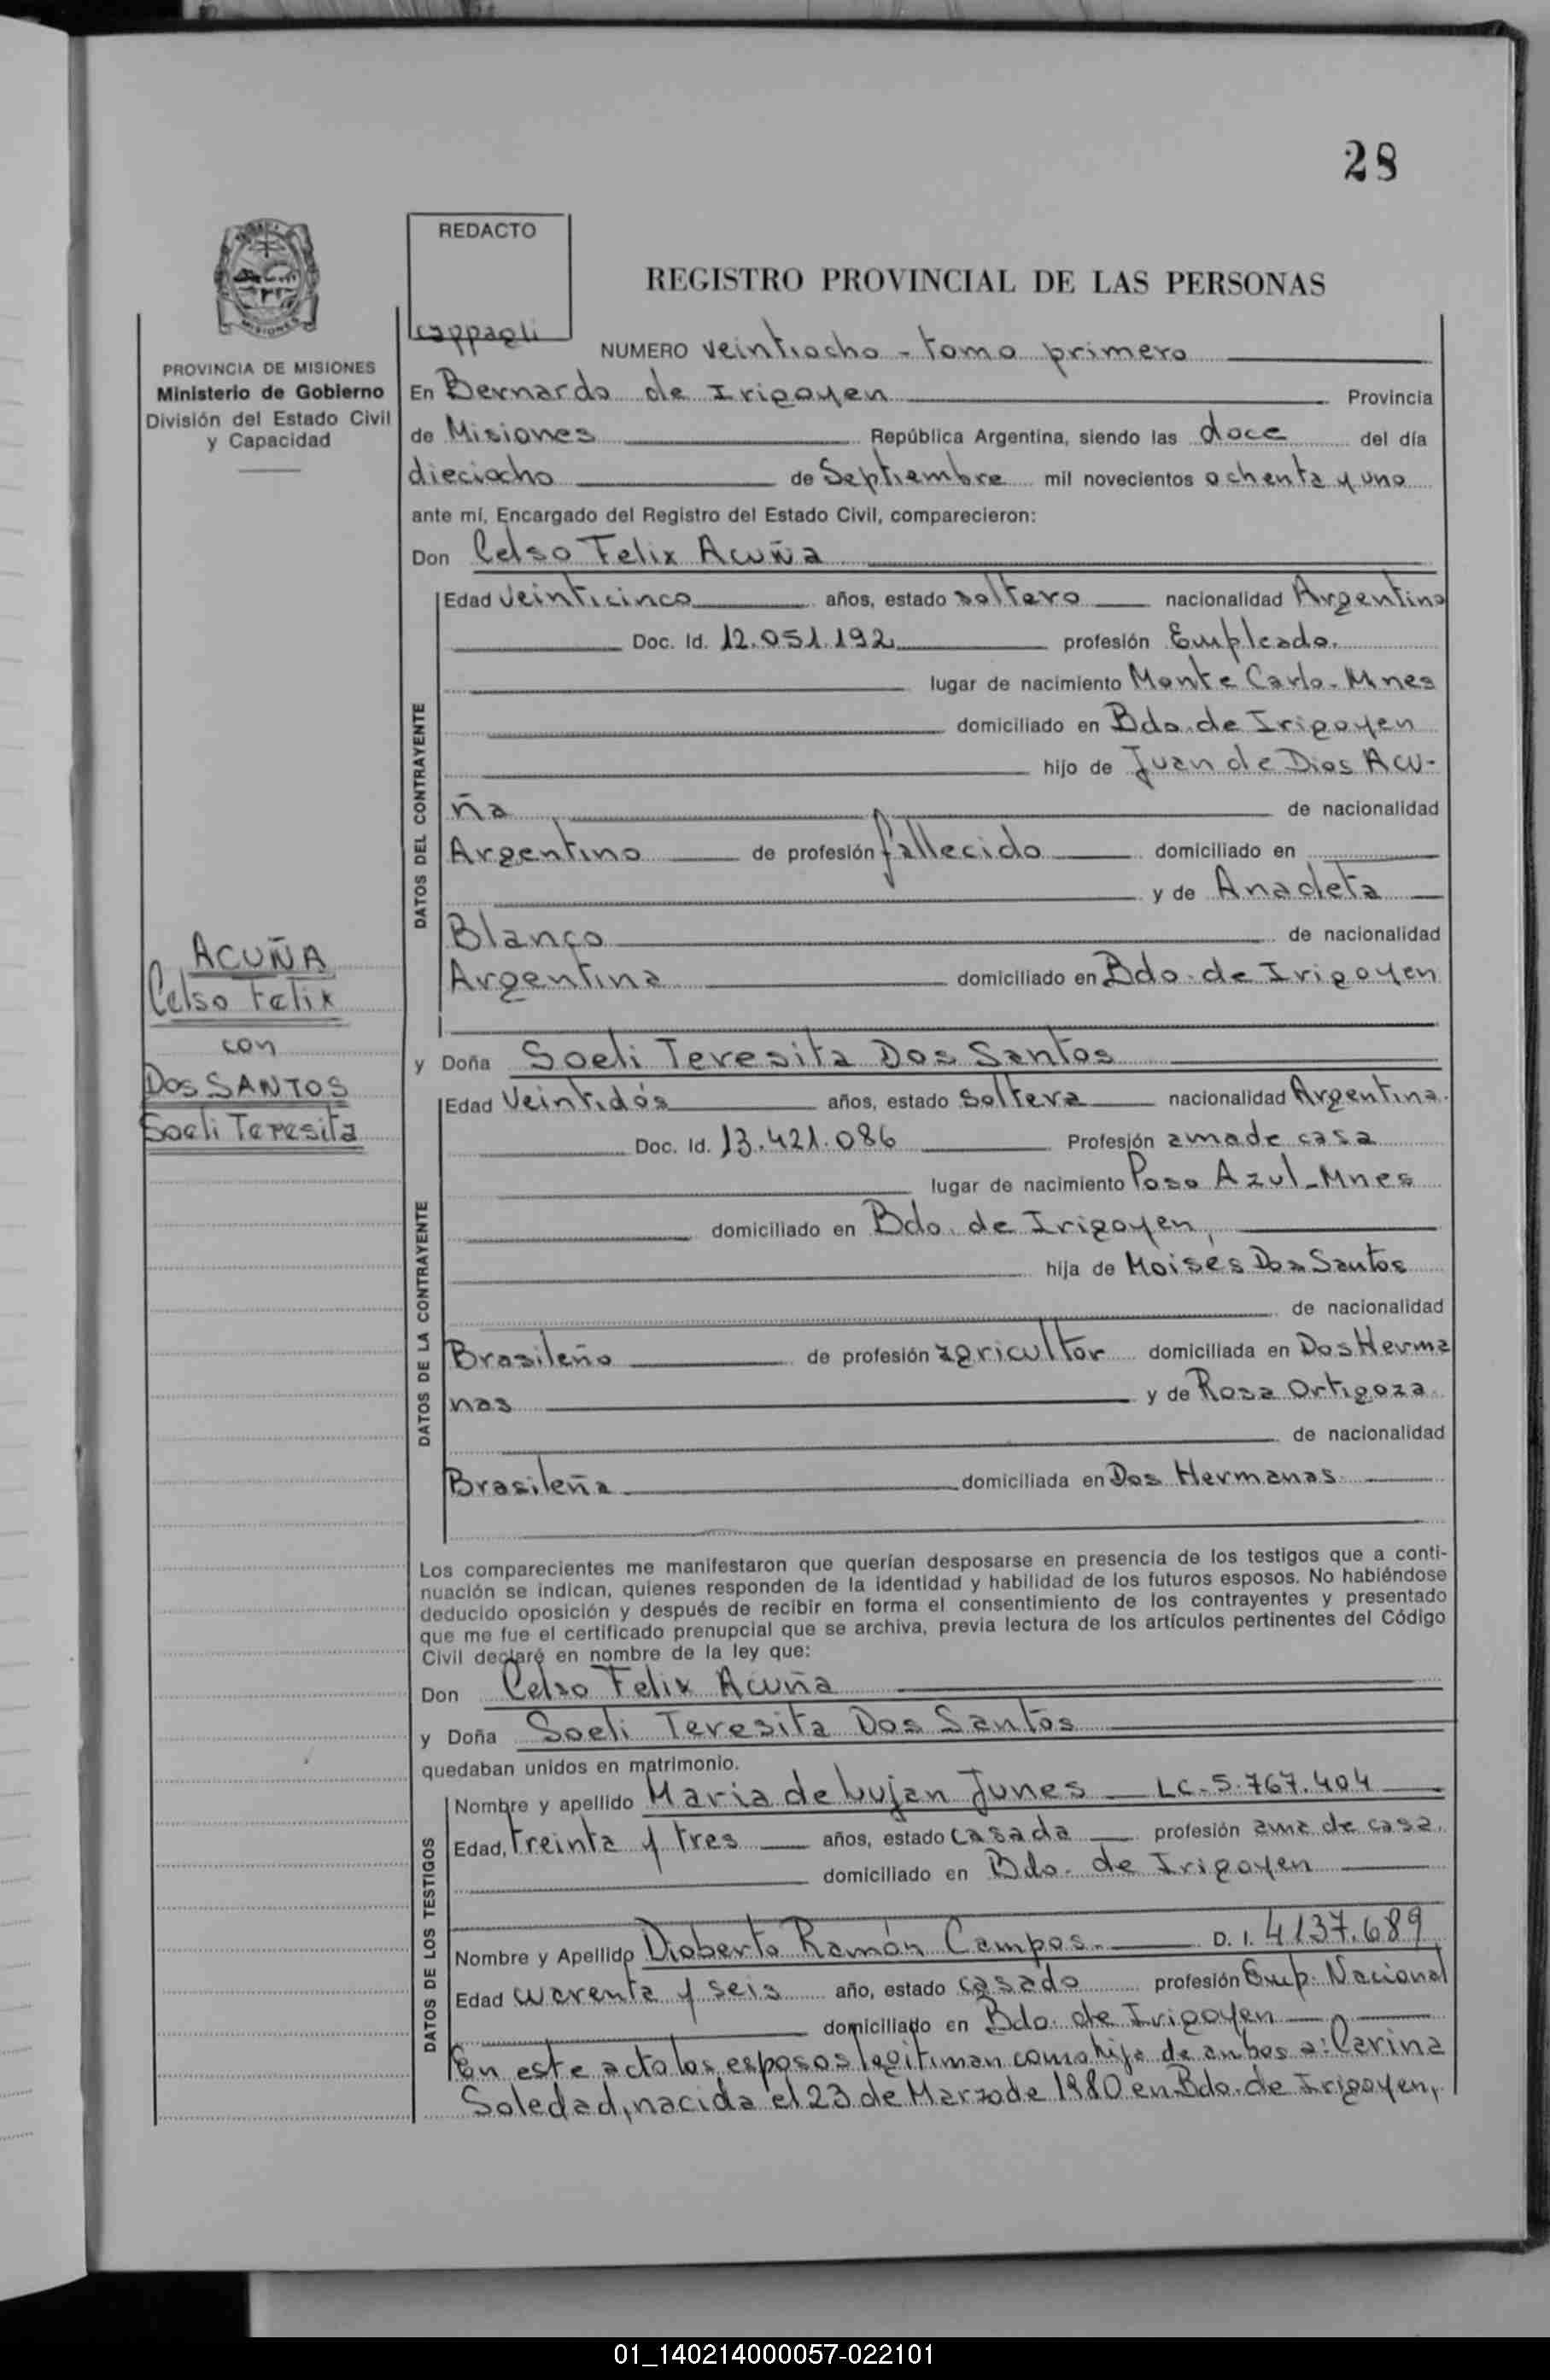 28
REDACTO
cappagli
REGISTRO PROVINCIAL DE LAS PERSONAS
MISIONES
PROVINCIA DE MISIONES
Ministerio de Gobierno
División del Estado Civil
y Capacidad
NUMERO veintiocho - tomo primero
En Bernardo de Irigoyen Provincia
de Misiones República Argentina, siendo las doce del día
dieciocho de Septiembre mil novecientos ochenta y uno
ante mí, Encargado del Registro del Estado Civil, comparecieron:
Don Celso Felix Acuña
DATOS DEL CONTRAYENTE
Edad veinticinco años, estado soltero nacionalidad Argentino
Doc. Id. 12.051.192 profesión Empleado.
lugar de nacimiento Monte Carlo - Mnes
domiciliado en Bdo. de Irigoyen
hijo de Juan de Dios Acu-
ña de nacionalidad
Argentino de profesión fallecido domiciliado en
y de Anacleta
Blanco de nacionalidad
Argentina domiciliado en Bdo. de Irigoyen
ACUÑA
Celso Felix
con
DOS SANTOS
Soeli Teresita
y Doña Soeli Teresita Dos Santos
DATOS DE LA CONTRAYENTE
Edad Veintidós años, estado Soltera nacionalidad Argentina.
Doc. Id. 13.421.086 Profesión ama de casa
lugar de nacimiento Poso Azul - Mnes
domiciliado en Bdo. de Irigoyen,
hija de Moisés Dos Santos
de nacionalidad
Brasileño de profesión agricultor domiciliada en Dos Herma
nas y de Rosa Ortigoza
de nacionalidad
Brasileña domiciliada en Dos Hermanas
Los comparecientes me manifestaron que querían desposarse en presencia de los testigos que a conti-
nuación se indican, quienes responden de la identidad y habilidad de los futuros esposos. No habiéndose
deducido oposición y después de recibir en forma el consentimiento de los contrayentes y presentado
que me fue el certificado prenupcial que se archiva, previa lectura de los artículos pertinentes del Código
Civil declaré en nombre de la ley que:
Don Celso Felix Acuña
y Doña Soeli Teresita Dos Santos
quedaban unidos en matrimonio.
DATOS DE LOS TESTIGOS
Nombre y apellido Maria de Lujan Junes LC - 5.767.404
Edad, treinta y tres años, estado casada profesión ama de casa.
domiciliado en Bdo. de Irigoyen
Nombre y Apellido Dioberto Ramón Campos. D. I. 4137.689
Edad cuarenta y seis año, estado casado profesión Emp. Nacional
domiciliado en Bdo. de Irigoyen
En este acto los esposos legitiman como hija de ambos a: Carina
Soledad, nacida el 23 de Marzo de 1980 en Bdo. de Irigoyen,
01_140214000057-022101